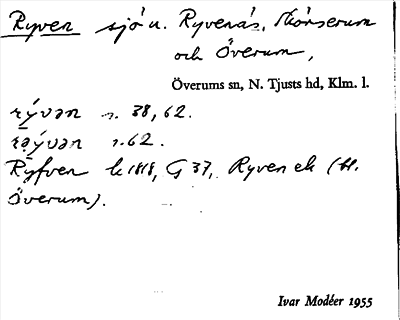 Ryven sjö u. Ryvenäs, Skönserum
och Överum,
Överums sn, N. Tjusts hd, Klm. l.
rývən n. 38, 62.
rəývən n. 62.
Ryfven k 1818, G 37, Ryven ek (bl.
Överum).
Ivar Modéer 1955